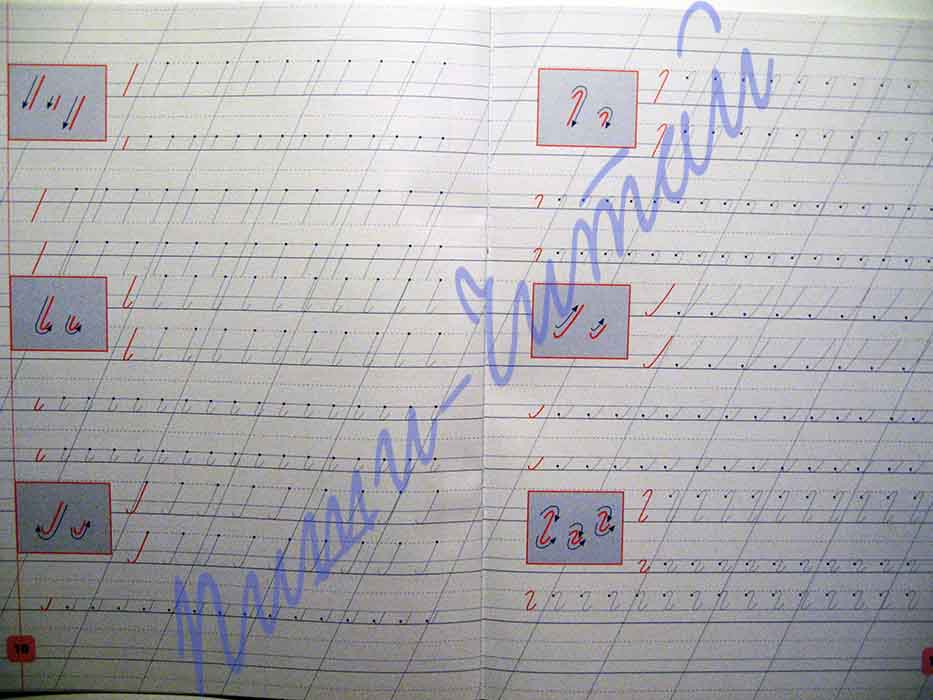 Пиши-Читай
10